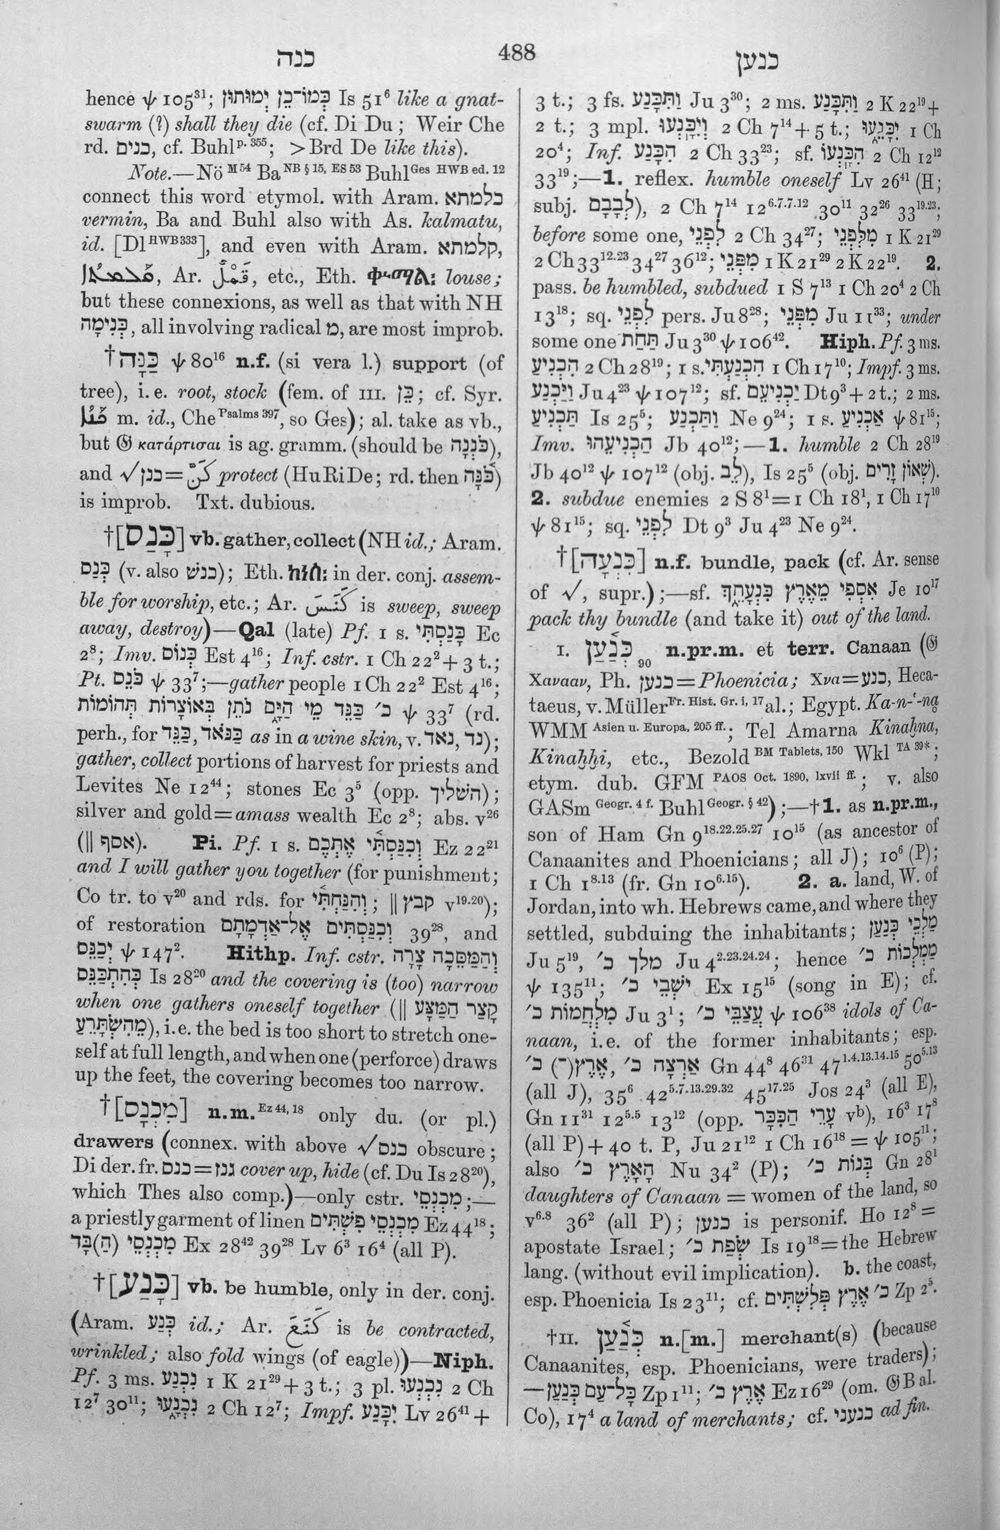 כנה
488
כנען
hence ψ 105³¹; כְּמוֹ־כֵן יְמוּתוּן Is 51⁶ like a gnat-
swarm (?) shall they die (cf. Di Du; Weir Che
rd. כנים, cf. Buhl p. 355; >Brd De like this).
Note.—Nö M 54 Ba NB § 15, ES 53 Buhl Ges HWB ed. 12
connect this word etymol. with Aram. כלמתא
vermin, Ba and Buhl also with As. kalmatu,
id. [Dl HWB 333], and even with Aram. קלמתא,
Ar. قَمْلٌ, etc., Eth. louse;
but these connexions, as well as that with NH
כְּנִימָה, all involving radical מ, are most improb.
†כַּנָּה ψ 80¹⁶ n.f. (si vera l.) support (of
tree), i.e. root, stock (fem. of III. כֵּן; cf. Syr.
m. id., Che Psalms 397, so Ges); al. take as vb.,
but 𝔊 κατάρτισαι is ag. gramm. (should be כֹּנְנָה),
and √כנן=كَنَّ protect (HuRiDe; rd. then כֹּנָּהּ)
is improb. Txt. dubious.
†[כָּנַס] vb. gather, collect (NH id.; Aram.
כְּנַס (v. also כנשׁ); Eth. in der. conj. assem-
ble for worship, etc.; Ar. كَنَسَ is sweep, sweep
away, destroy)—Qal (late) Pf. 1 s. כָּנַסְתִּי Ec
2⁸; Imv. כְּנוֹס Est 4¹⁶; Inf. cstr. 1 Ch 22²+3 t.;
Pt. כֹּנֵס ψ 33⁷;—gather people 1 Ch 22² Est 4¹⁶;
כ׳ כַּנֵּד מֵי הַיָּם נֹתֵן בְּאוֹצָרוֹת תְּהוֹמוֹת ψ 33⁷ (rd.
perh., for כַּנֵּד, כַּנֹּאד as in a wine skin, v. נד, נאד);
gather, collect portions of harvest for priests and
Levites Ne 12⁴⁴; stones Ec 3⁵ (opp. השׁליך);
silver and gold=amass wealth Ec 2⁸; abs. v²⁶
(|| אסף). Pi. Pf. 1 s. וְכִנַּסְתִּי אֶתְכֶם Ez 22²¹
and I will gather you together (for punishment;
Co tr. to v²⁰ and rds. for וְהִנַּחְתִּי; || קבץ v¹⁹·²⁰);
of restoration וְכִנַּסְתִּים אֶל־אַדְמָתָם 39²⁸, and
יְכַנֵּס ψ 147². Hithp. Inf. cstr. וְהַמַּסֵּכָה צָרָה
כְּהִתְכַּנֵּס Is 28²⁰ and the covering is (too) narrow
when one gathers oneself together (|| קָצַר הַמַּצָּע
מֵהִשְׂתָּרֵעַ), i.e. the bed is too short to stretch one-
self at full length, and when one (perforce) draws
up the feet, the covering becomes too narrow.
†[מִכְנָס] n.m. Ez 44, 18 only du. (or pl.)
drawers (connex. with above √כנס obscure;
Di der. fr. כנס=גנז cover up, hide (cf. Du Is 28²⁰),
which Thes also comp.)—only cstr. מִכְנְסֵי;—
a priestly garment of linen מִכְנְסֵי פִשְׁתִּים Ez 44¹⁸;
מִכְנְסֵי (הַ)בָּד Ex 28⁴² 39²⁸ Lv 6³ 16⁴ (all P).
†[כָּנַע] vb. be humble, only in der. conj.
(Aram. כְּנַע id.; Ar. كَنَعَ is be contracted,
wrinkled; also fold wings (of eagle))—Niph.
Pf. 3 ms. נִכְנַע 1 K 21²⁹+3 t.; 3 pl. נִכְנְעוּ 2 Ch
12⁷ 30¹¹; נִכְנָעוּ 2 Ch 12⁷; Impf. יִכָּנַע Lv 26⁴¹+
3 t.; 3 fs. וַתִּכָּנַע Ju 3³⁰; 2 ms. וַתִּכָּנַע 2 K 22¹⁹+
2 t.; 3 mpl. וַיִּכָּנְעוּ 2 Ch 7¹⁴+5 t.; יִכָּנֵעוּ 1 Ch
20⁴; Inf. הִכָּנַע 2 Ch 33²³; sf. הִכָּנְעוֹ 2 Ch 12¹²
33¹⁹;—1. reflex. humble oneself Lv 26⁴¹ (H;
subj. לְבָבָם), 2 Ch 7¹⁴ 12⁶·⁷·⁷·¹² 30¹¹ 32²⁶ 33¹⁹·²³;
before some one, לִפְנֵי 2 Ch 34²⁷; מִלִּפְנֵי 1 K 21²⁹
2 Ch 33¹²·²³ 34²⁷ 36¹²; מִפְּנֵי 1 K 21²⁹ 2 K 22¹⁹. 2.
pass. be humbled, subdued 1 S 7¹³ 1 Ch 20⁴ 2 Ch
13¹⁸; sq. לִפְנֵי pers. Ju 8²⁸; מִפְּנֵי Ju 11³³; under
some one תַּחַת Ju 3³⁰ ψ 106⁴². Hiph. Pf. 3 ms.
הִכְנִיעַ 2 Ch 28¹⁹; 1 s. הִכְנַעְתִּי 1 Ch 17¹⁰; Impf. 3 ms.
וַיַּכְנַע Ju 4²³ ψ 107¹²; sf. יַכְנִיעֵם Dt 9³+2 t.; 2 ms.
תַּכְנִיעַ Is 25⁵; וַתַּכְנַע Ne 9²⁴; 1 s. אַכְנִיעַ ψ 81¹⁵;
Imv. הַכְנִיעֵהוּ Jb 40¹²;—1. humble 2 Ch 28¹⁹
Jb 40¹² ψ 107¹² (obj. לֵב), Is 25⁵ (obj. שְׁאוֹן זָרִים).
2. subdue enemies 2 S 8¹=1 Ch 18¹, 1 Ch 17¹⁰
ψ 81¹⁵; sq. לִפְנֵי Dt 9³ Ju 4²³ Ne 9²⁴.
†[כִּנְעָה] n.f. bundle, pack (cf. Ar. sense
of √, supr.);—sf. אִסְפִּי מֵאֶרֶץ כִּנְעָתֵךְ Je 10¹⁷
pack thy bundle (and take it) out of the land.
I. כְּנַעַן 90 n.pr.m. et terr. Canaan (𝔊
Χανααν, Ph. כנען=Phoenicia; Χνα=כנע, Heca-
taeus, v. Müller Fr. Hist. Gr. i, 17 al.; Egypt. Ka-n-‘-na
WMM Asien u. Europa, 205 ff.; Tel Amarna Kinaḫna,
Kinaḫḫi, etc., Bezold BM Tablets, 150 Wkl TA 39*;
etym. dub. GFM PAOS Oct. 1890, lxvii ff.; v. also
GASm Geogr. 4 f. Buhl Geogr. § 42);—†1. as n.pr.m.,
son of Ham Gn 9¹⁸·²²·²⁵·²⁷ 10¹⁵ (as ancestor of
Canaanites and Phoenicians; all J); 10⁶ (P);
1 Ch 1⁸·¹³ (fr. Gn 10⁶·¹⁵). 2. a. land, W. of
Jordan, into wh. Hebrews came, and where they
settled, subduing the inhabitants; מַלְכֵי כְנָעַן
Ju 5¹⁹, מלך כ׳ Ju 4²·²³·²⁴·²⁴; hence מַמְלְכוֹת כ׳
ψ 135¹¹; ישְׁבֵי כ׳ Ex 15¹⁵ (song in E); cf.
מִלְחֲמוֹת כ׳ Ju 3¹; עֲצַבֵּי כ׳ ψ 106³⁸ idols of Ca-
naan, i.e. of the former inhabitants; esp.
אֶרֶץ(־) כ׳, אַרְצָה כ׳ Gn 44⁸ 46³¹ 47¹·⁴·¹³·¹⁴·¹⁵ 50⁵·¹³
(all J), 35⁶ 42⁵·⁷·¹³·²⁹·³² 45¹⁷·²⁵ Jos 24³ (all E),
Gn 11³¹ 12⁵·⁵ 13¹² (opp. עָרֵי הַכִּכָּר vᵇ), 16³ 17⁸
(all P)+40 t. P, Ju 21¹² 1 Ch 16¹⁸=ψ 105¹¹;
also הָאָרֶץ כ׳ Nu 34² (P); בְּנוֹת כ׳ Gn 28¹
daughters of Canaan = women of the land, so
v⁶·⁸ 36² (all P); כנען is personif. Ho 12⁸=
apostate Israel; שְׂפַת כ׳ Is 19¹⁸=the Hebrew
lang. (without evil implication). b. the coast,
esp. Phoenicia Is 23¹¹; cf. כ׳ אֶרֶץ פְּלִשְׁתִּים Zp 2⁵.
†II. כְּנַעַן n.[m.] merchant(s) (because
Canaanites, esp. Phoenicians, were traders);
—כָּל־עַם כְּנַעַן Zp 1¹¹; אֶרֶץ כ׳ Ez 16²⁹ (om. 𝔊B al.
Co), 17⁴ a land of merchants; cf. כנעני ad fin.